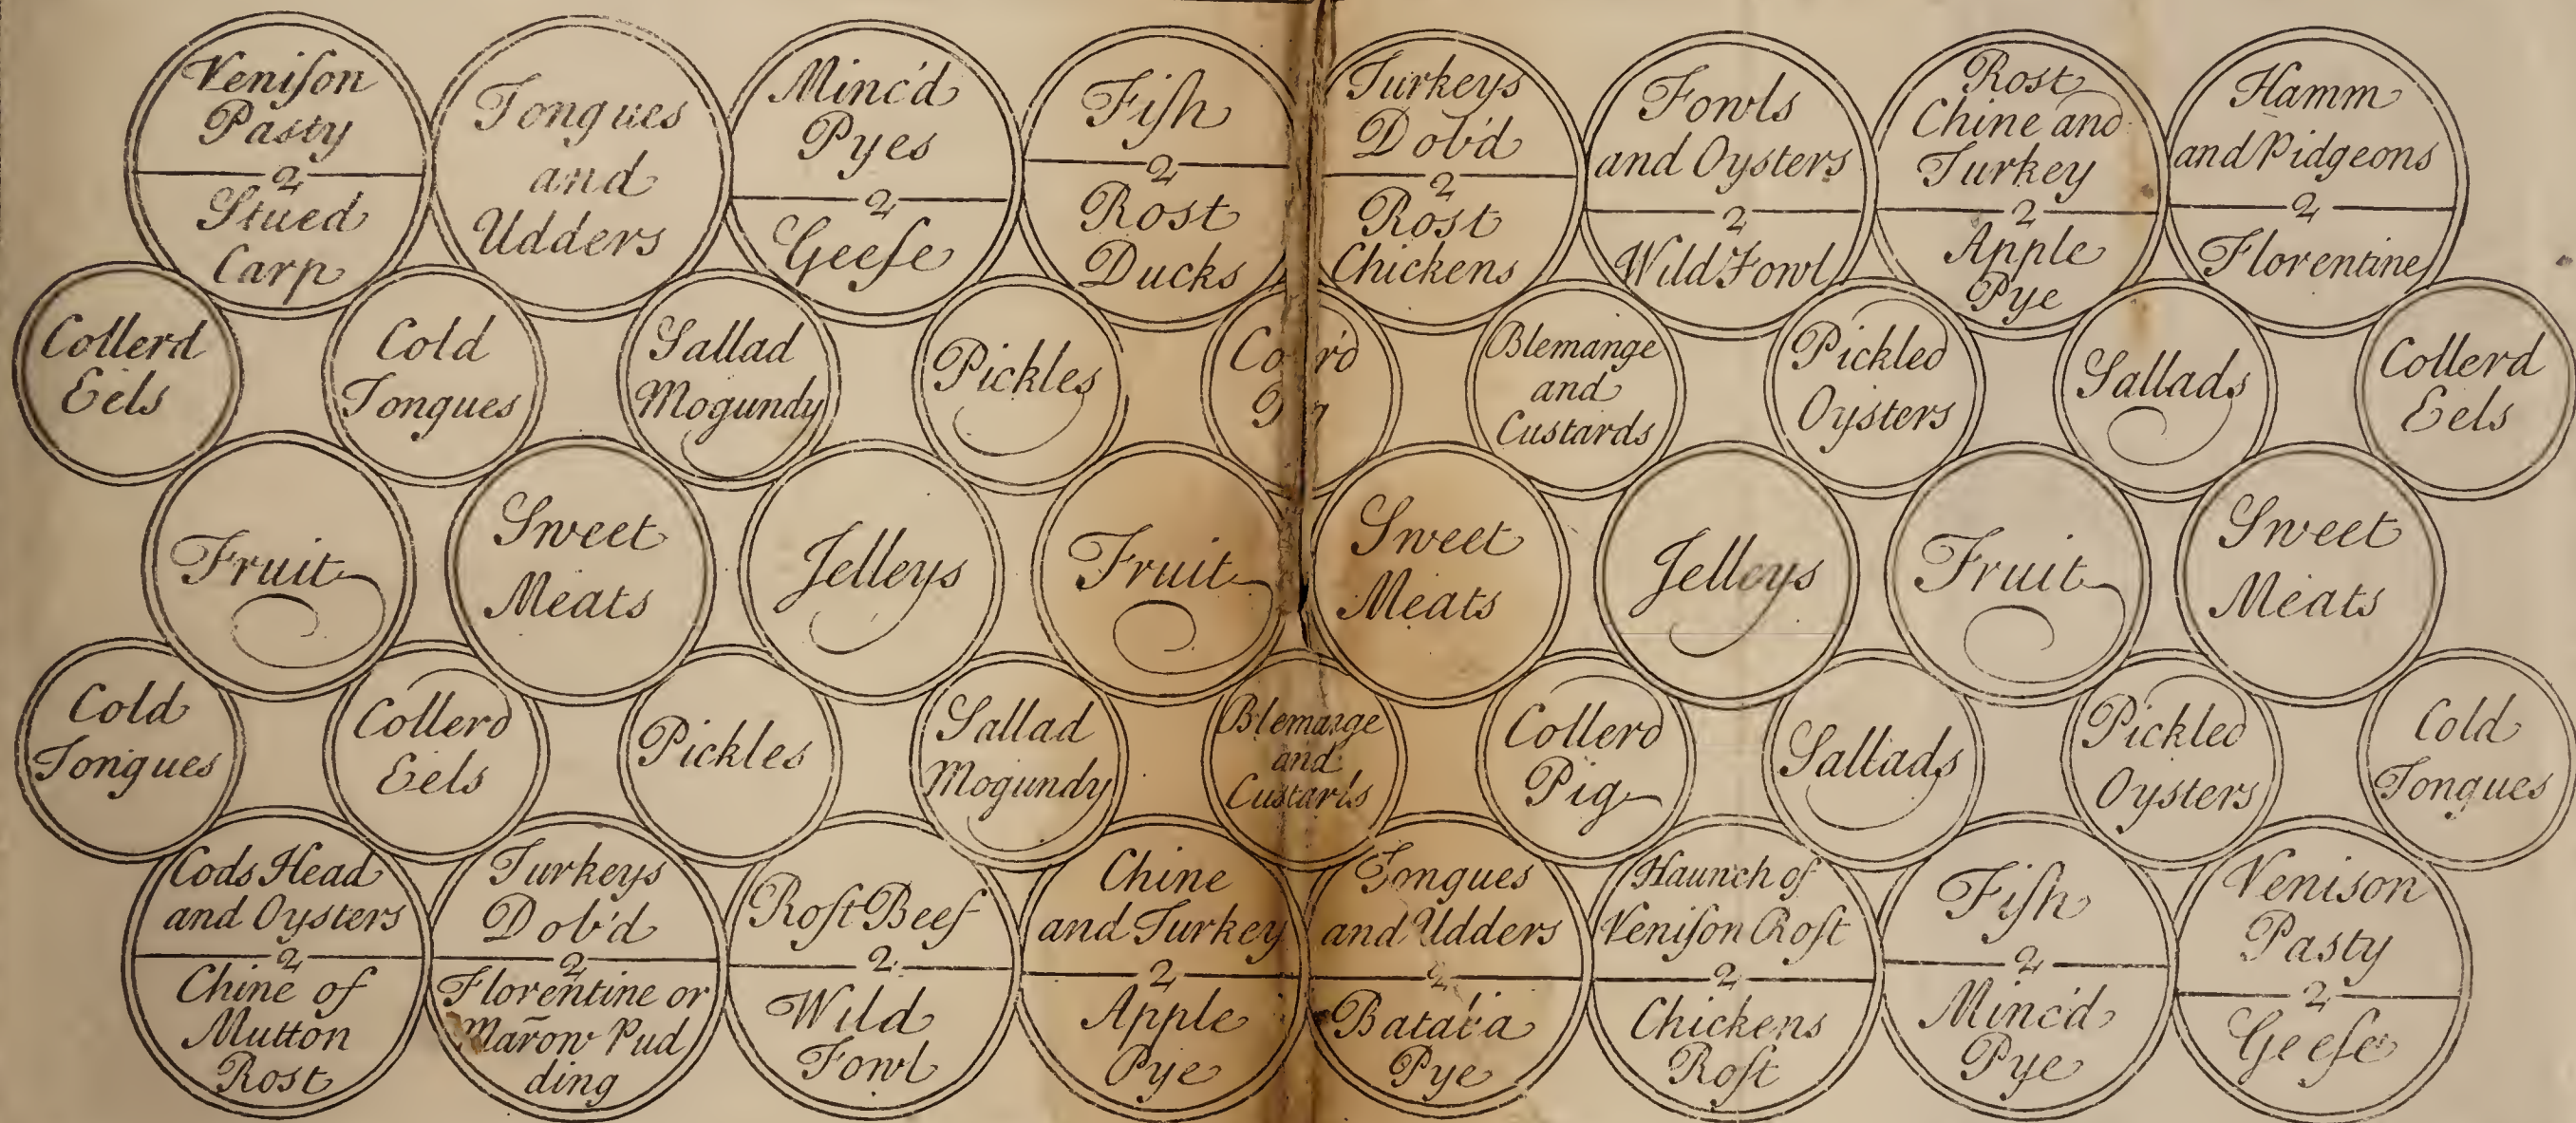 Veniſon
Pasty
2
Stued
Carp
Tongues
and
Udders
Minc'd
Pyes
2
Geeſe
Fiſh
2
Rost
Ducks
Turkeys
Dob'd
2
Rost
Chickens
Fowls
and Oysters
2
Wild Fowl
Rost
Chine and
Turkey
2
Apple
Pye
Hamm
and Pidgeons
2
Florentine
Collerd
Eels
Cold
Tongues
Sallad
Mogundy
Pickles
Blemange
and
Custards
Pickled
Oysters
Sallads
Collerd
Eels
Fruit
Sweet
Meats
Jelleys
Fruit
Sweet
Meats
Jelleys
Fruit
Sweet
Meats
Cold
Tongues
Collerd
Eels
Pickles
Sallad
Mogundy
Blemange
and
Custards
Collerd
Pig
Sallads
Pickled
Oysters
Cold
Tongues
Cods Head
and Oysters
2
Chine of
Mutton
Rost
Turkeys
Dob'd
2
Florentine or
Mar̄ow Pud
ding
Roſt Beef
2
Wild
Fowl
Chine
and Turkey
2
Apple
Pye
Tongues
and Udders
2
Batata
Pye
Haunch of
Veniſon Roſt
2
Chickens
Roſt
Fiſh
2
Minc'd
Pye
Venison
Pasty
2
Geeſe